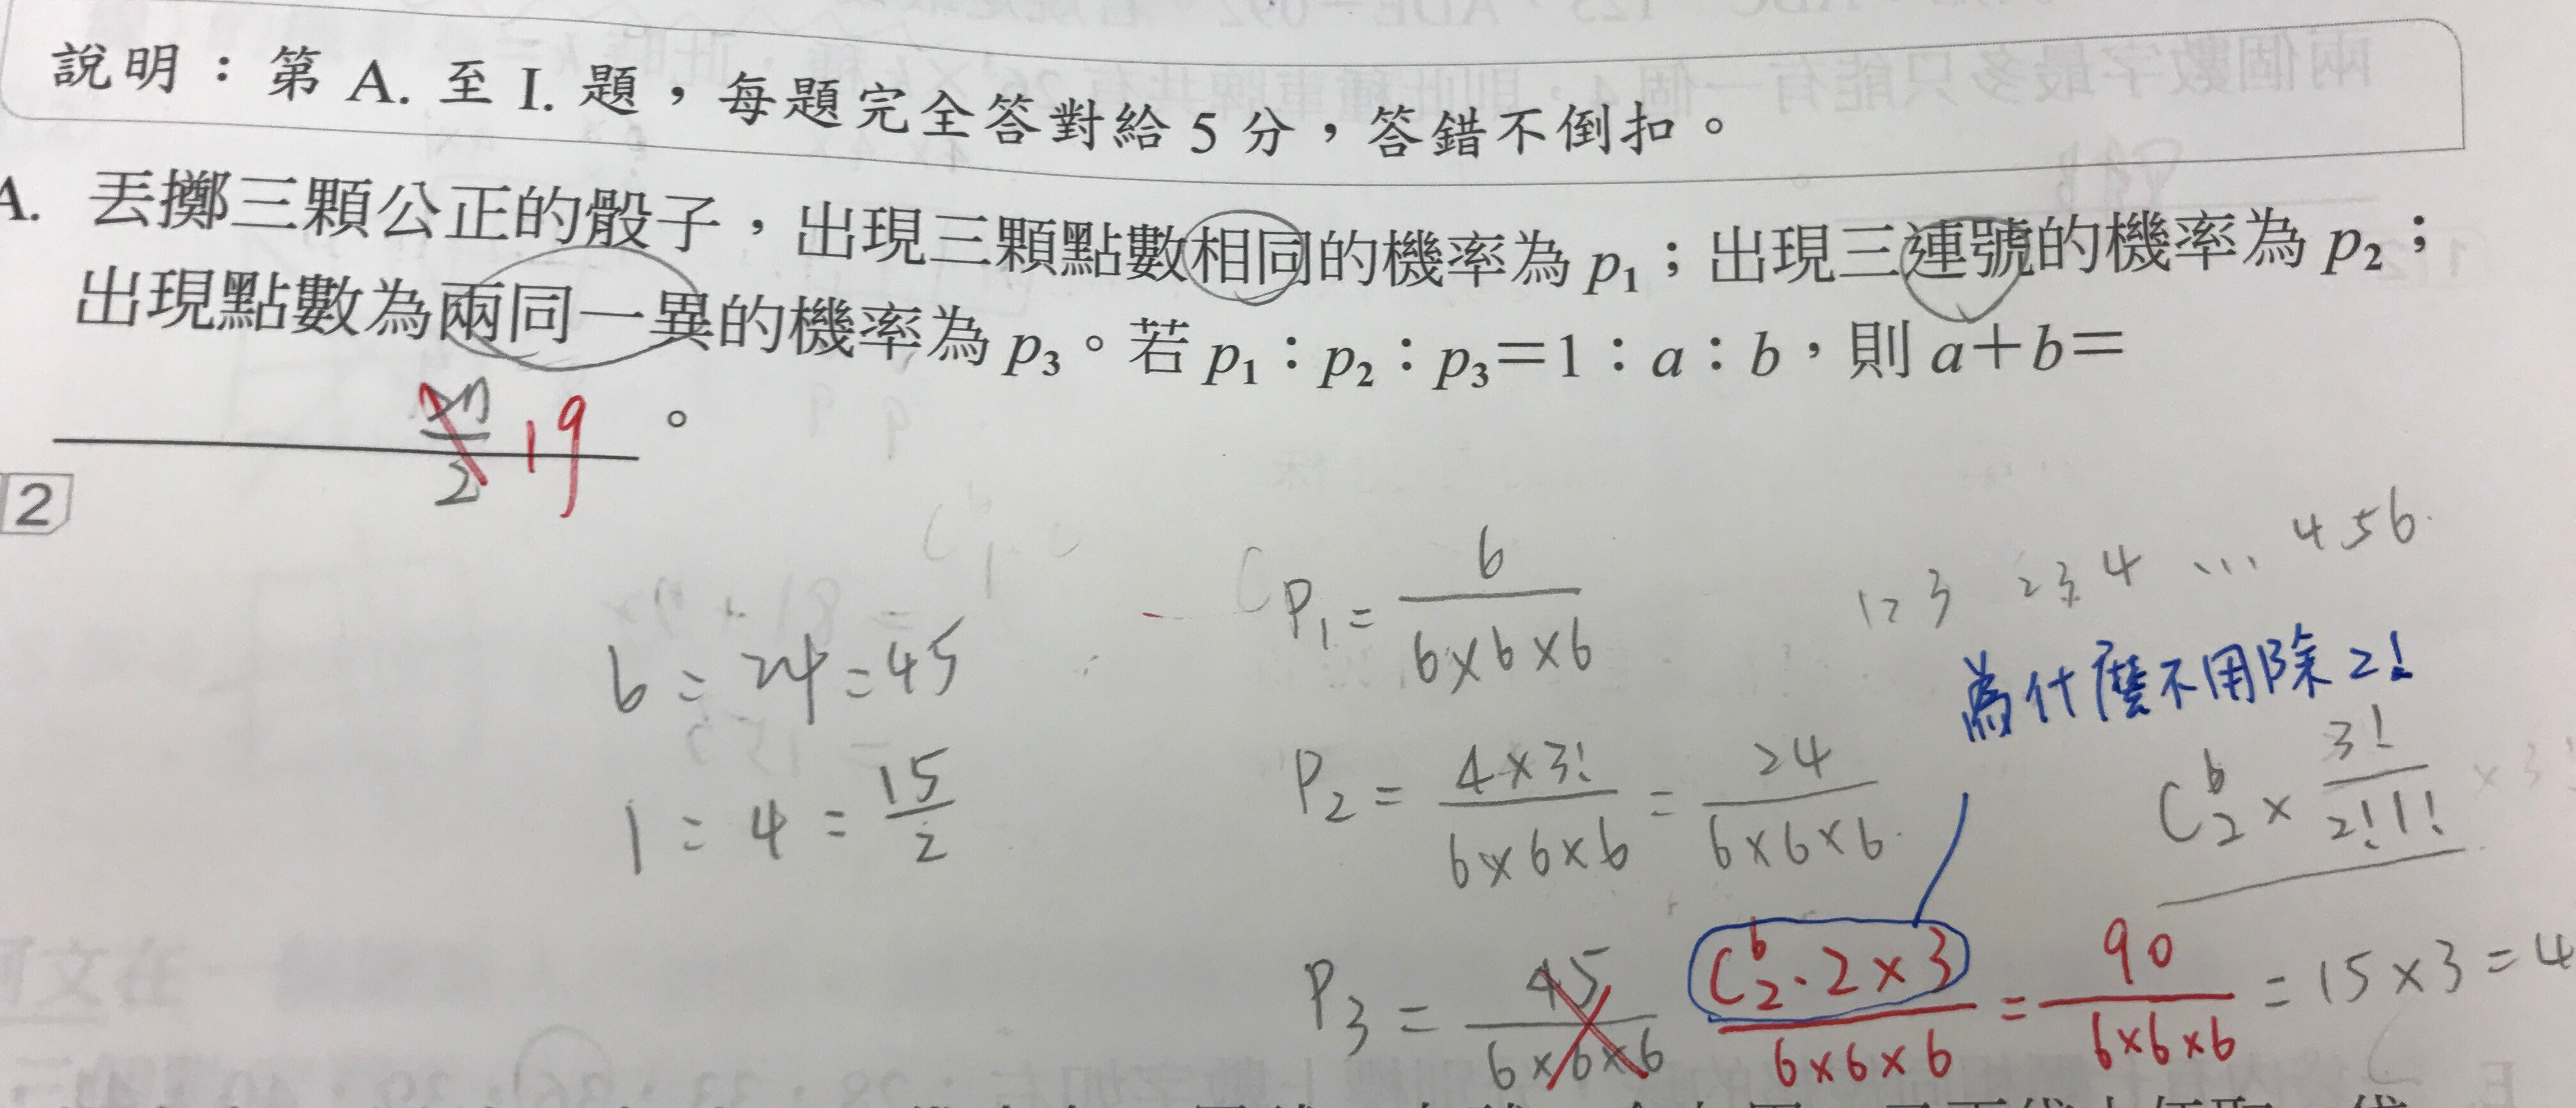 說明：第 A. 至 I. 題，每題完全答對給 5 分，答錯不倒扣。
A. 丟擲三顆公正的骰子，出現三顆點數相同的機率為 p₁；出現三連號的機率為 p₂；
出現點數為兩同一異的機率為 p₃。若 p₁：p₂：p₃＝1：a：b，則 a＋b＝
19 。
2
123 234 ... 456
P₁ = 6/(6×6×6)
6 : 24 : 45
為什麼不用除2!
1 : 4 : 15/2
P₂ = (4×3!)/(6×6×6) = 24/(6×6×6)
C⁶₂ × 3!/(2!1!)
P₃ = 45/(6×6×6) (C⁶₂·2×3)/(6×6×6) = 90/(6×6×6) = 15×3=4